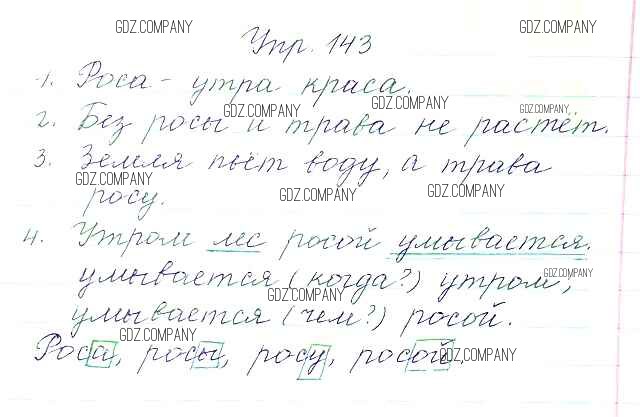 GDZ.COMPANY GDZ.COMPANY
Упр. 143
1. Роса - утра краса.
GDZ.COMPANY GDZ.COMPANY GDZ.COMPANY
2. Без росы и трава не растёт.
3. Земля пьёт воду, а трава
GDZ.COMPANY GDZ.COMPANY GDZ.COMPANY
росу.
4. Утром лес росой умывается.
умывается (когда?) утром,
GDZ.COMPANY GDZ.COMPANY
умывается (чем?) росой.
GDZ.COMPANY
Роса, росы, росу, росой,
GDZ.COMPANY